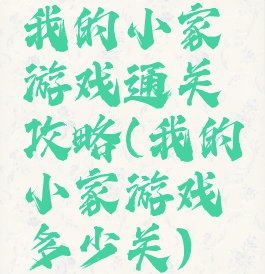 我的小家
游戏通关
攻略(我的
小家游戏
多少关)